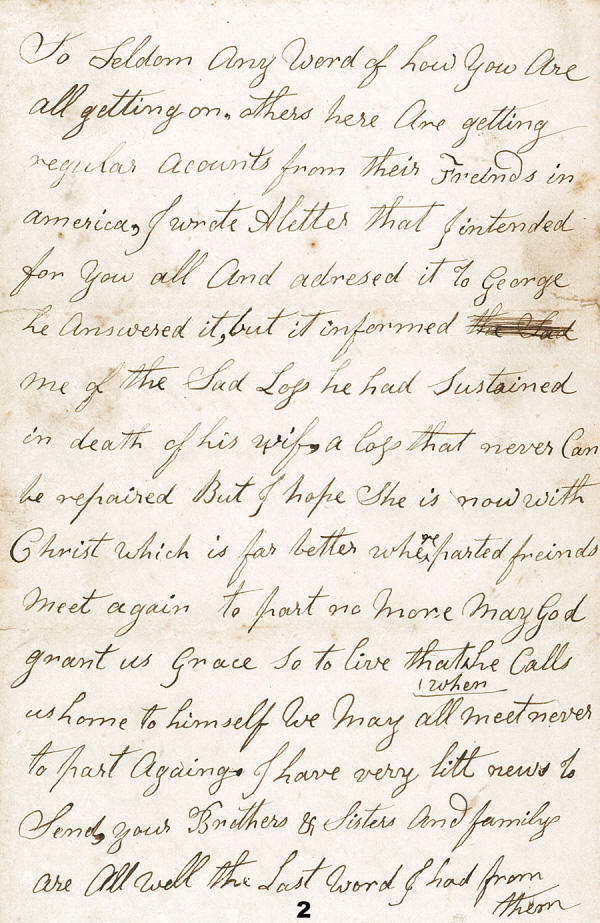 To Seldom Any Word of how You Are
all getting on. others here Are getting
regular acounts from their Freinds in
america, I wrote A letter that I intended
for You all And adresed it to George
he Answered it, but it informed the Sad
me of the Sad Loss he had Sustained
in death of his wife, a loss that never Can
be repaired But I hope She is now with
Christ which is far better where parted freinds
Meet again to part no More May God
grant us Grace So to live that he Calls
when
us home to himself We May all meet never
to part Again, I have very litt news to
Send, your Brothers & Sisters And family
are All well the Last Word I had from
them
2